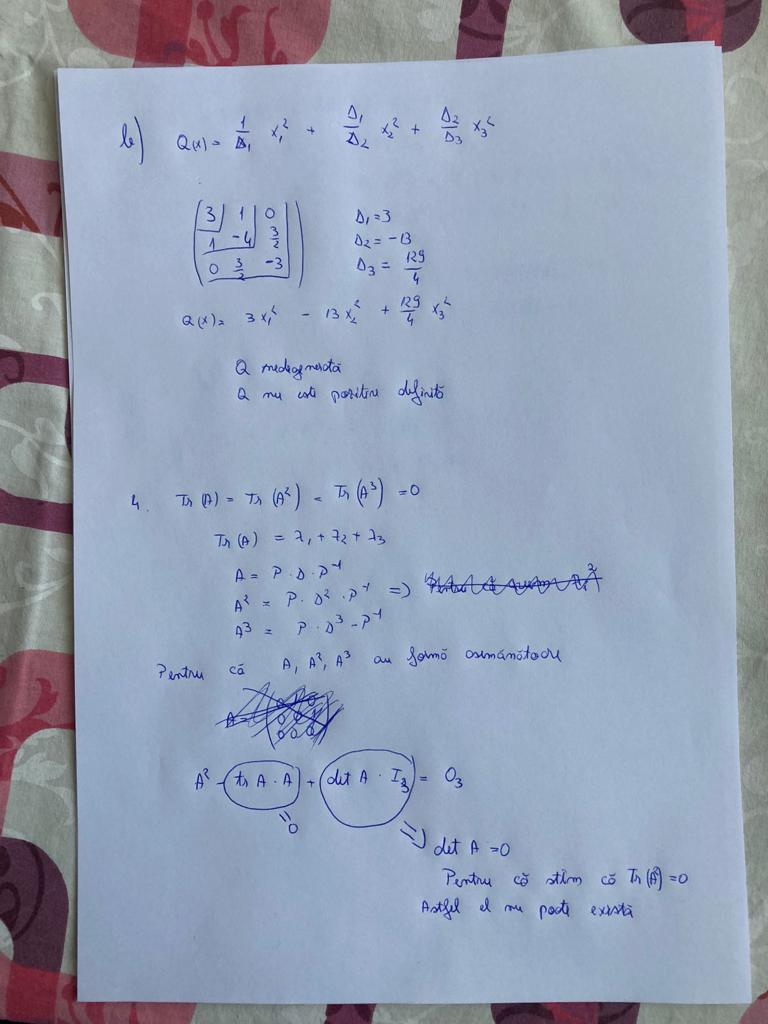 b) Q(x) = 1/Δ₁ x₁² + Δ₁/Δ₂ x₂² + Δ₂/Δ₃ x₃²
3 1 0 Δ₁ = 3
1 -4 3/2 Δ₂ = -13
0 3/2 -3 Δ₃ = 129/4
Q(x) = 3x₁² - 13x₂² + 129/4 x₃²
Q nedegenerată
Q nu este pozitiv definită
4. Tr(A) = Tr(A²) = Tr(A³) = 0
Tr(A) = λ₁ + λ₂ + λ₃
A = P · D · P⁻¹
A² = P · D² · P⁻¹ =>
A³ = P · D³ - P⁻¹
Pentru că A, A², A³ au formă asemănătoare
A² - tr A · A + det A · I₃ = O₃
= 0
=> det A = 0
Pentru că știm că Tr(A²) = 0
Astfel el nu poate exista